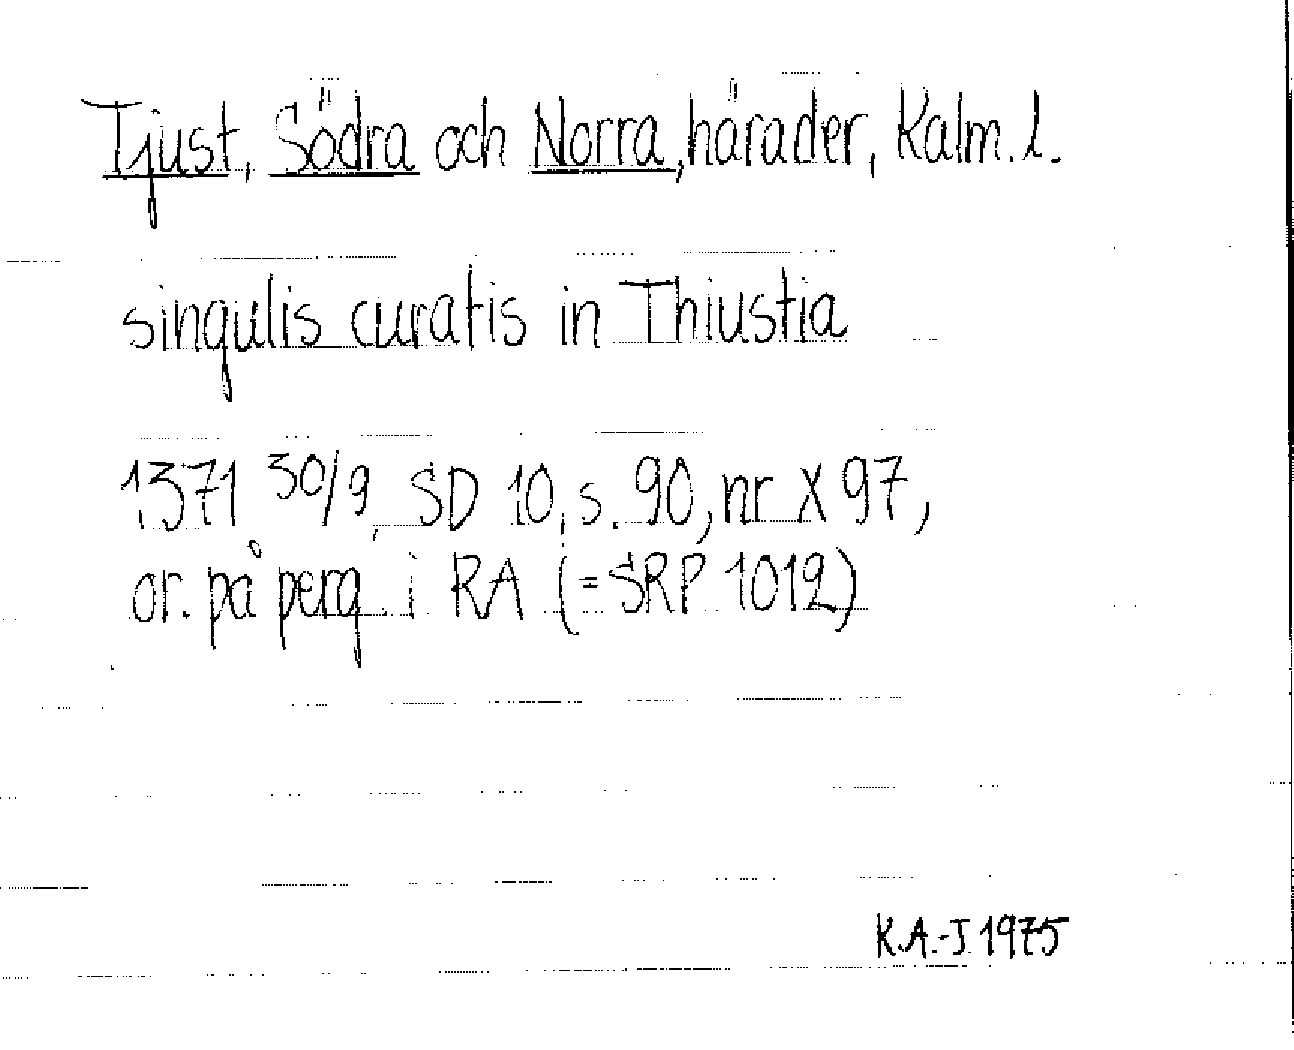 Tjust, Södra och Norra, härader, Kalm. l.
singulis curatis in Thiustia
1371 30/9, SD 10, s. 90, nr X 97,
or. på perg i RA (= SRP 1012)
K.A.-J 1975